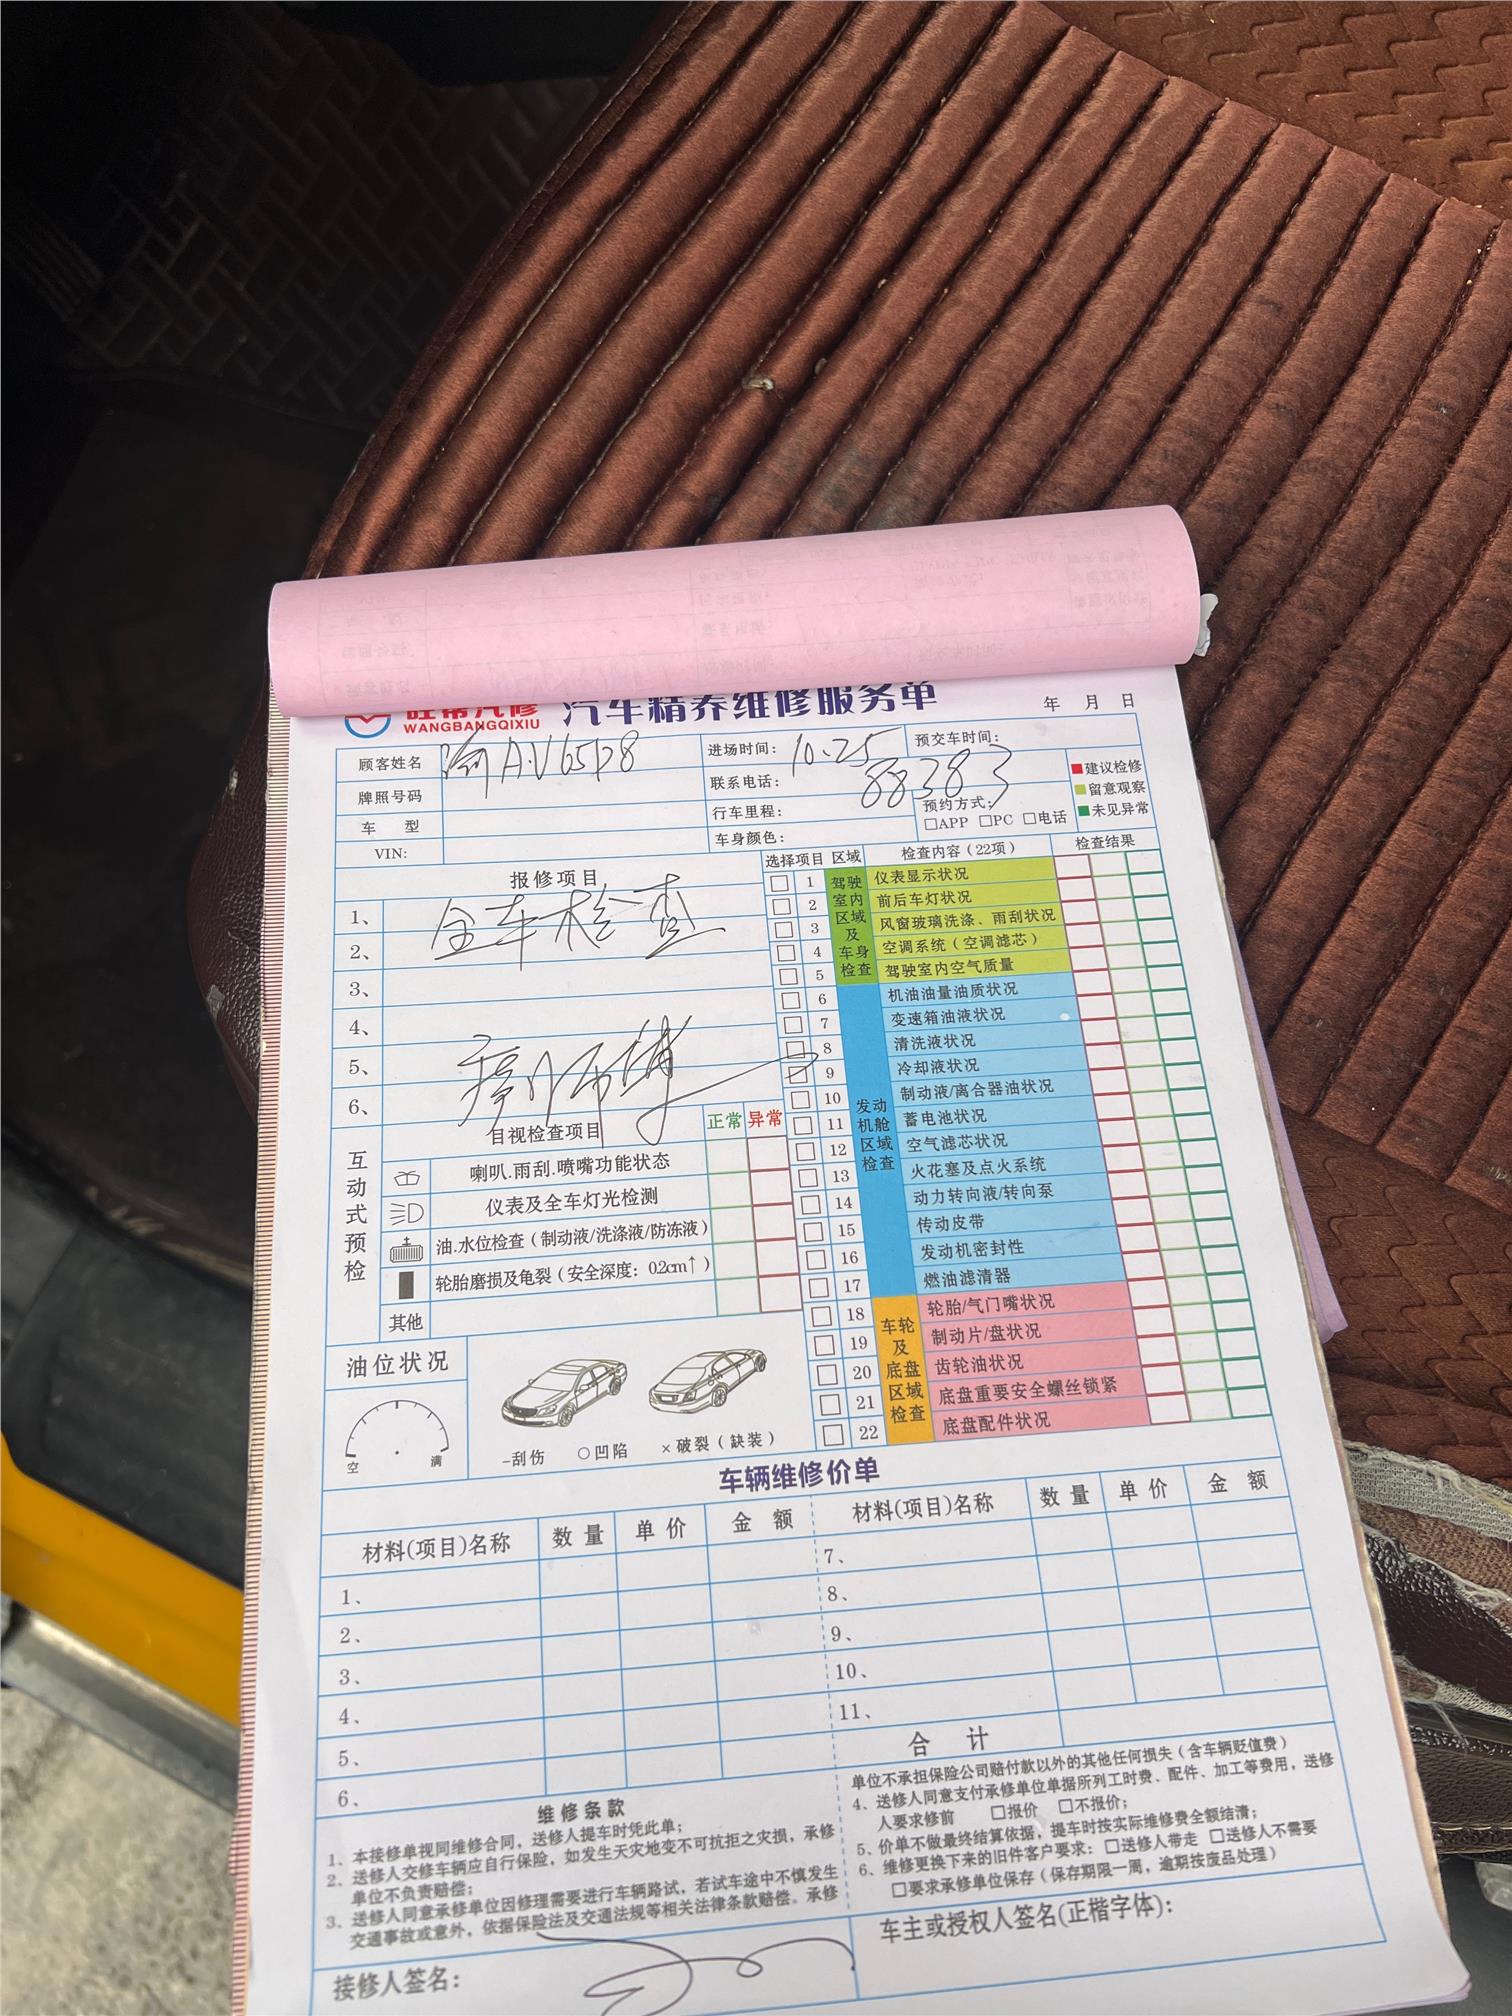 旺帮汽修
WANGBANGQIXIU
汽车精养维修服务单
年 月 日
顾客姓名
渝A·V65P8
进场时间：
10.25
预交车时间：
牌照号码
联系电话：
88383
建议检修
留意观察
未见异常
车 型
行车里程：
预约方式：
□APP □PC □电话
VIN:
车身颜色：
报修项目
选择项目 区域 检查内容（22项） 检查结果
1、
全车检查
2、
3、
4、
5、
师博
6、
驾驶室内区域及车身检查
1 仪表显示状况
2 前后车灯状况
3 风窗玻璃洗涤、雨刮状况
4 空调系统（空调滤芯）
5 驾驶室内空气质量
发动机舱区域检查
6 机油油量油质状况
7 变速箱油液状况
8 清洗液状况
9 冷却液状况
10 制动液/离合器油状况
11 蓄电池状况
12 空气滤芯状况
13 火花塞及点火系统
14 动力转向液/转向泵
15 传动皮带
16 发动机密封性
17 燃油滤清器
车轮及底盘区域检查
18 轮胎/气门嘴状况
19 制动片/盘状况
20 齿轮油状况
21 底盘重要安全螺丝锁紧
22 底盘配件状况
互动式预检
目视检查项目 正常 异常
喇叭.雨刮.喷嘴功能状态
仪表及全车灯光检测
油.水位检查（制动液/洗涤液/防冻液）
轮胎磨损及龟裂（安全深度：0.2cm↑）
其他
油位状况
空 满
-刮伤 ○凹陷 ×破裂（缺装）
车辆维修价单
材料(项目)名称 数量 单价 金额 材料(项目)名称 数量 单价 金额
1、 7、
2、 8、
3、 9、
4、 10、
5、 11、
6、 合 计
维修条款
1、本接修单视同维修合同，送修人提车时凭此单；
2、送修人交修车辆应自行保险，如发生天灾地变不可抗拒之灾损，承修
单位不负责赔偿；
3、送修人同意承修单位因修理需要进行车辆路试，若试车途中不慎发生
交通事故或意外，依据保险法及交通法规等相关法律条款赔偿。承修
单位不承担保险公司赔付款以外的其他任何损失（含车辆贬值费）
4、送修人同意支付承修单位单据所列工时费、配件、加工等费用，送修
人要求修前 □报价 □不报价；
5、价单不做最终结算依据，提车时按实际维修费全额结清；
6、维修更换下来的旧件客户要求：□送修人带走 □送修人不需要
□要求承修单位保存（保存期限一周，逾期按废品处理）
接修人签名：
车主或授权人签名(正楷字体)：